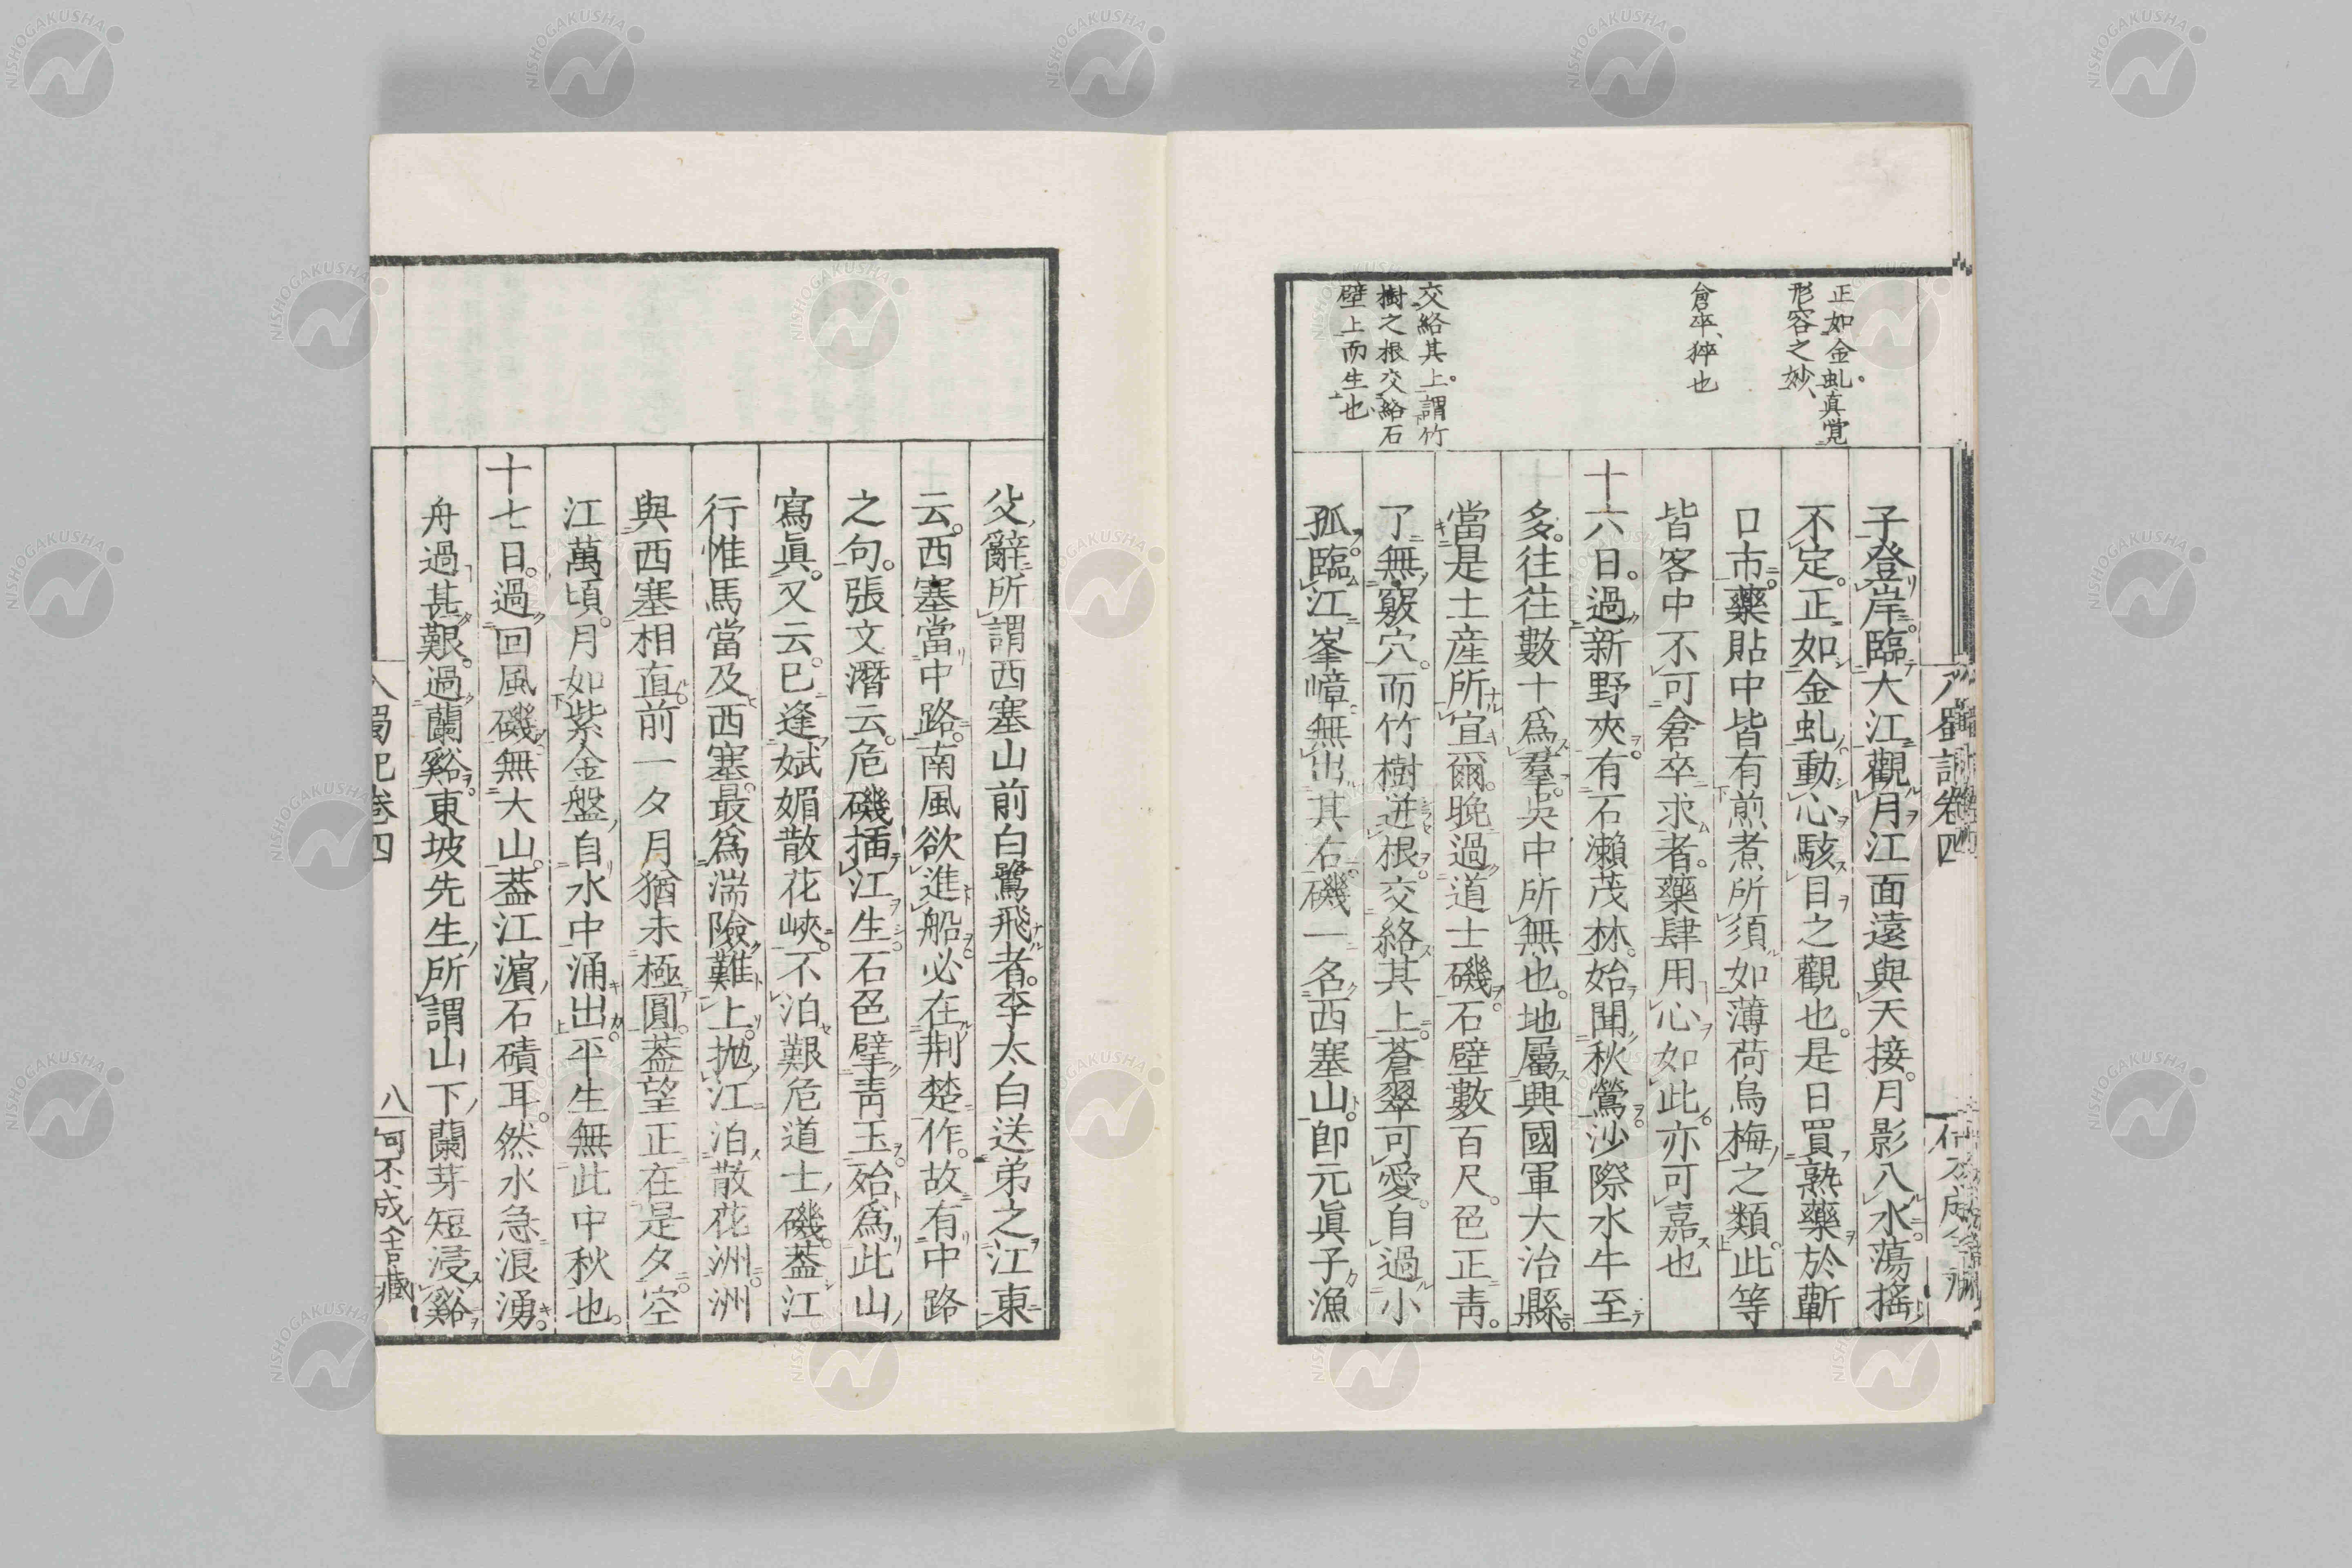 正如金虬。真覚
形容之妙、
倉卒、猝也
交絡其上。謂竹
樹之根交絡石
壁上而生也
子登岸。臨大江觀月江面遠與天接。月影入水。蕩搖
不定。正如金虬動心駭目之觀也。是日買熟藥於蘄
口市。藥貼中皆有煎煮所須如薄荷烏梅之類。此等
皆客中不可倉卒求者。藥肆用心如此。亦可嘉也
十六日。過新野夾。有石瀨茂林。始聞秋鶯。沙際水牛至
多。往往數十爲羣。吳中所無也。地屬興國軍大冶縣。
當是土産所宜爾。晩過道士磯。石壁數百尺。色正靑。
了無竅穴。而竹樹迸根。交絡其上。蒼翠可愛。自過小
孤。臨江峯嶂無出其右。磯一名西塞山。卽元眞子漁
父辭所謂西塞山前白鷺飛者。李太白送弟之江東
云。西塞當中路。南風欲進船。必在荆楚作。故有中路
之句。張文潛云。危磯插江生。石色擘靑玉。殆爲此山
寫眞。又云。已逢娬媚散花峽。不泊艱危道士磯。葢江
行惟馬當及西塞。最爲湍險難上。抛江泊散花洲。洲
與西塞相直。前一夕月猶未極圓。葢望正在是夕。空
江萬頃。月如紫金盤。自水中涌出。平生無此中秋也。
十七日。過回風磯。無大山。葢江濵石磧耳。然水急浪湧。
舟過甚艱。過蘭谿。東坡先生所謂山下蘭芽短浸谿
蜀記卷四
八
何不成舍藏